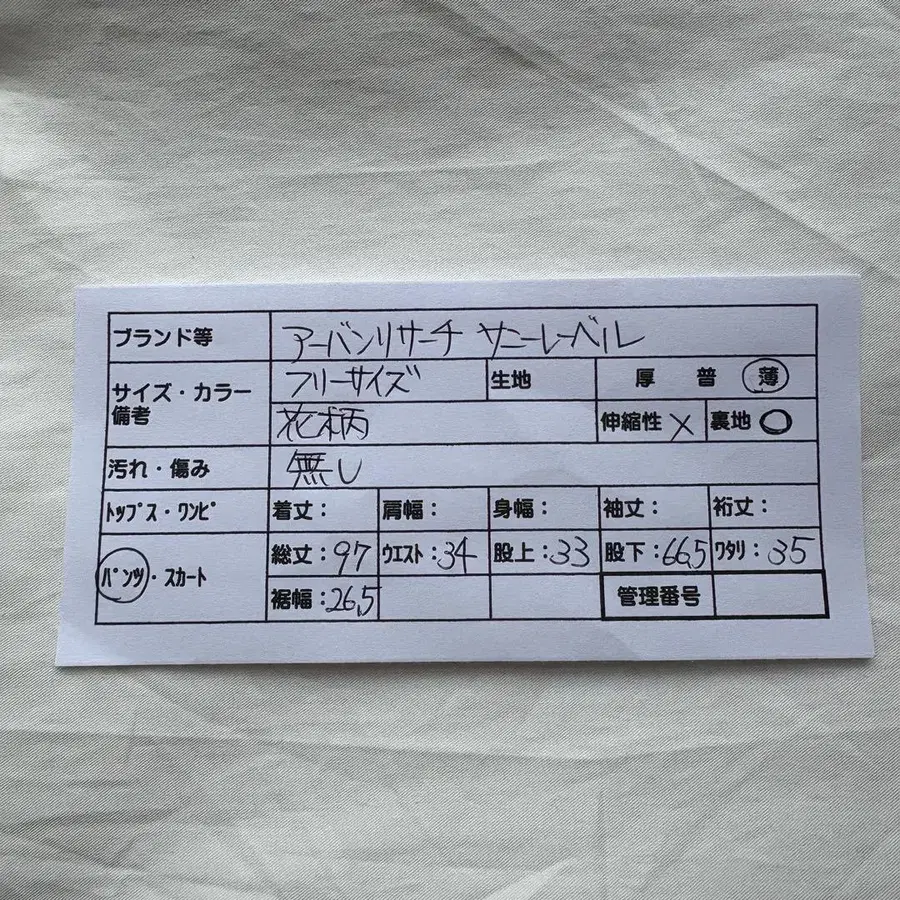 ブランド等 アーバンリサーチ サニーレーベル
サイズ・カラー備考 フリーサイズ 生地 厚 普 薄
花柄 伸縮性 × 裏地 ○
汚れ・傷み 無し
トップス・ワンピ 着丈： 肩幅： 身幅： 袖丈： 裄丈：
パンツ・スカート 総丈：97 ウエスト：34 股上：33 股下：66.5 ワタリ：35
裾幅：26.5 管理番号